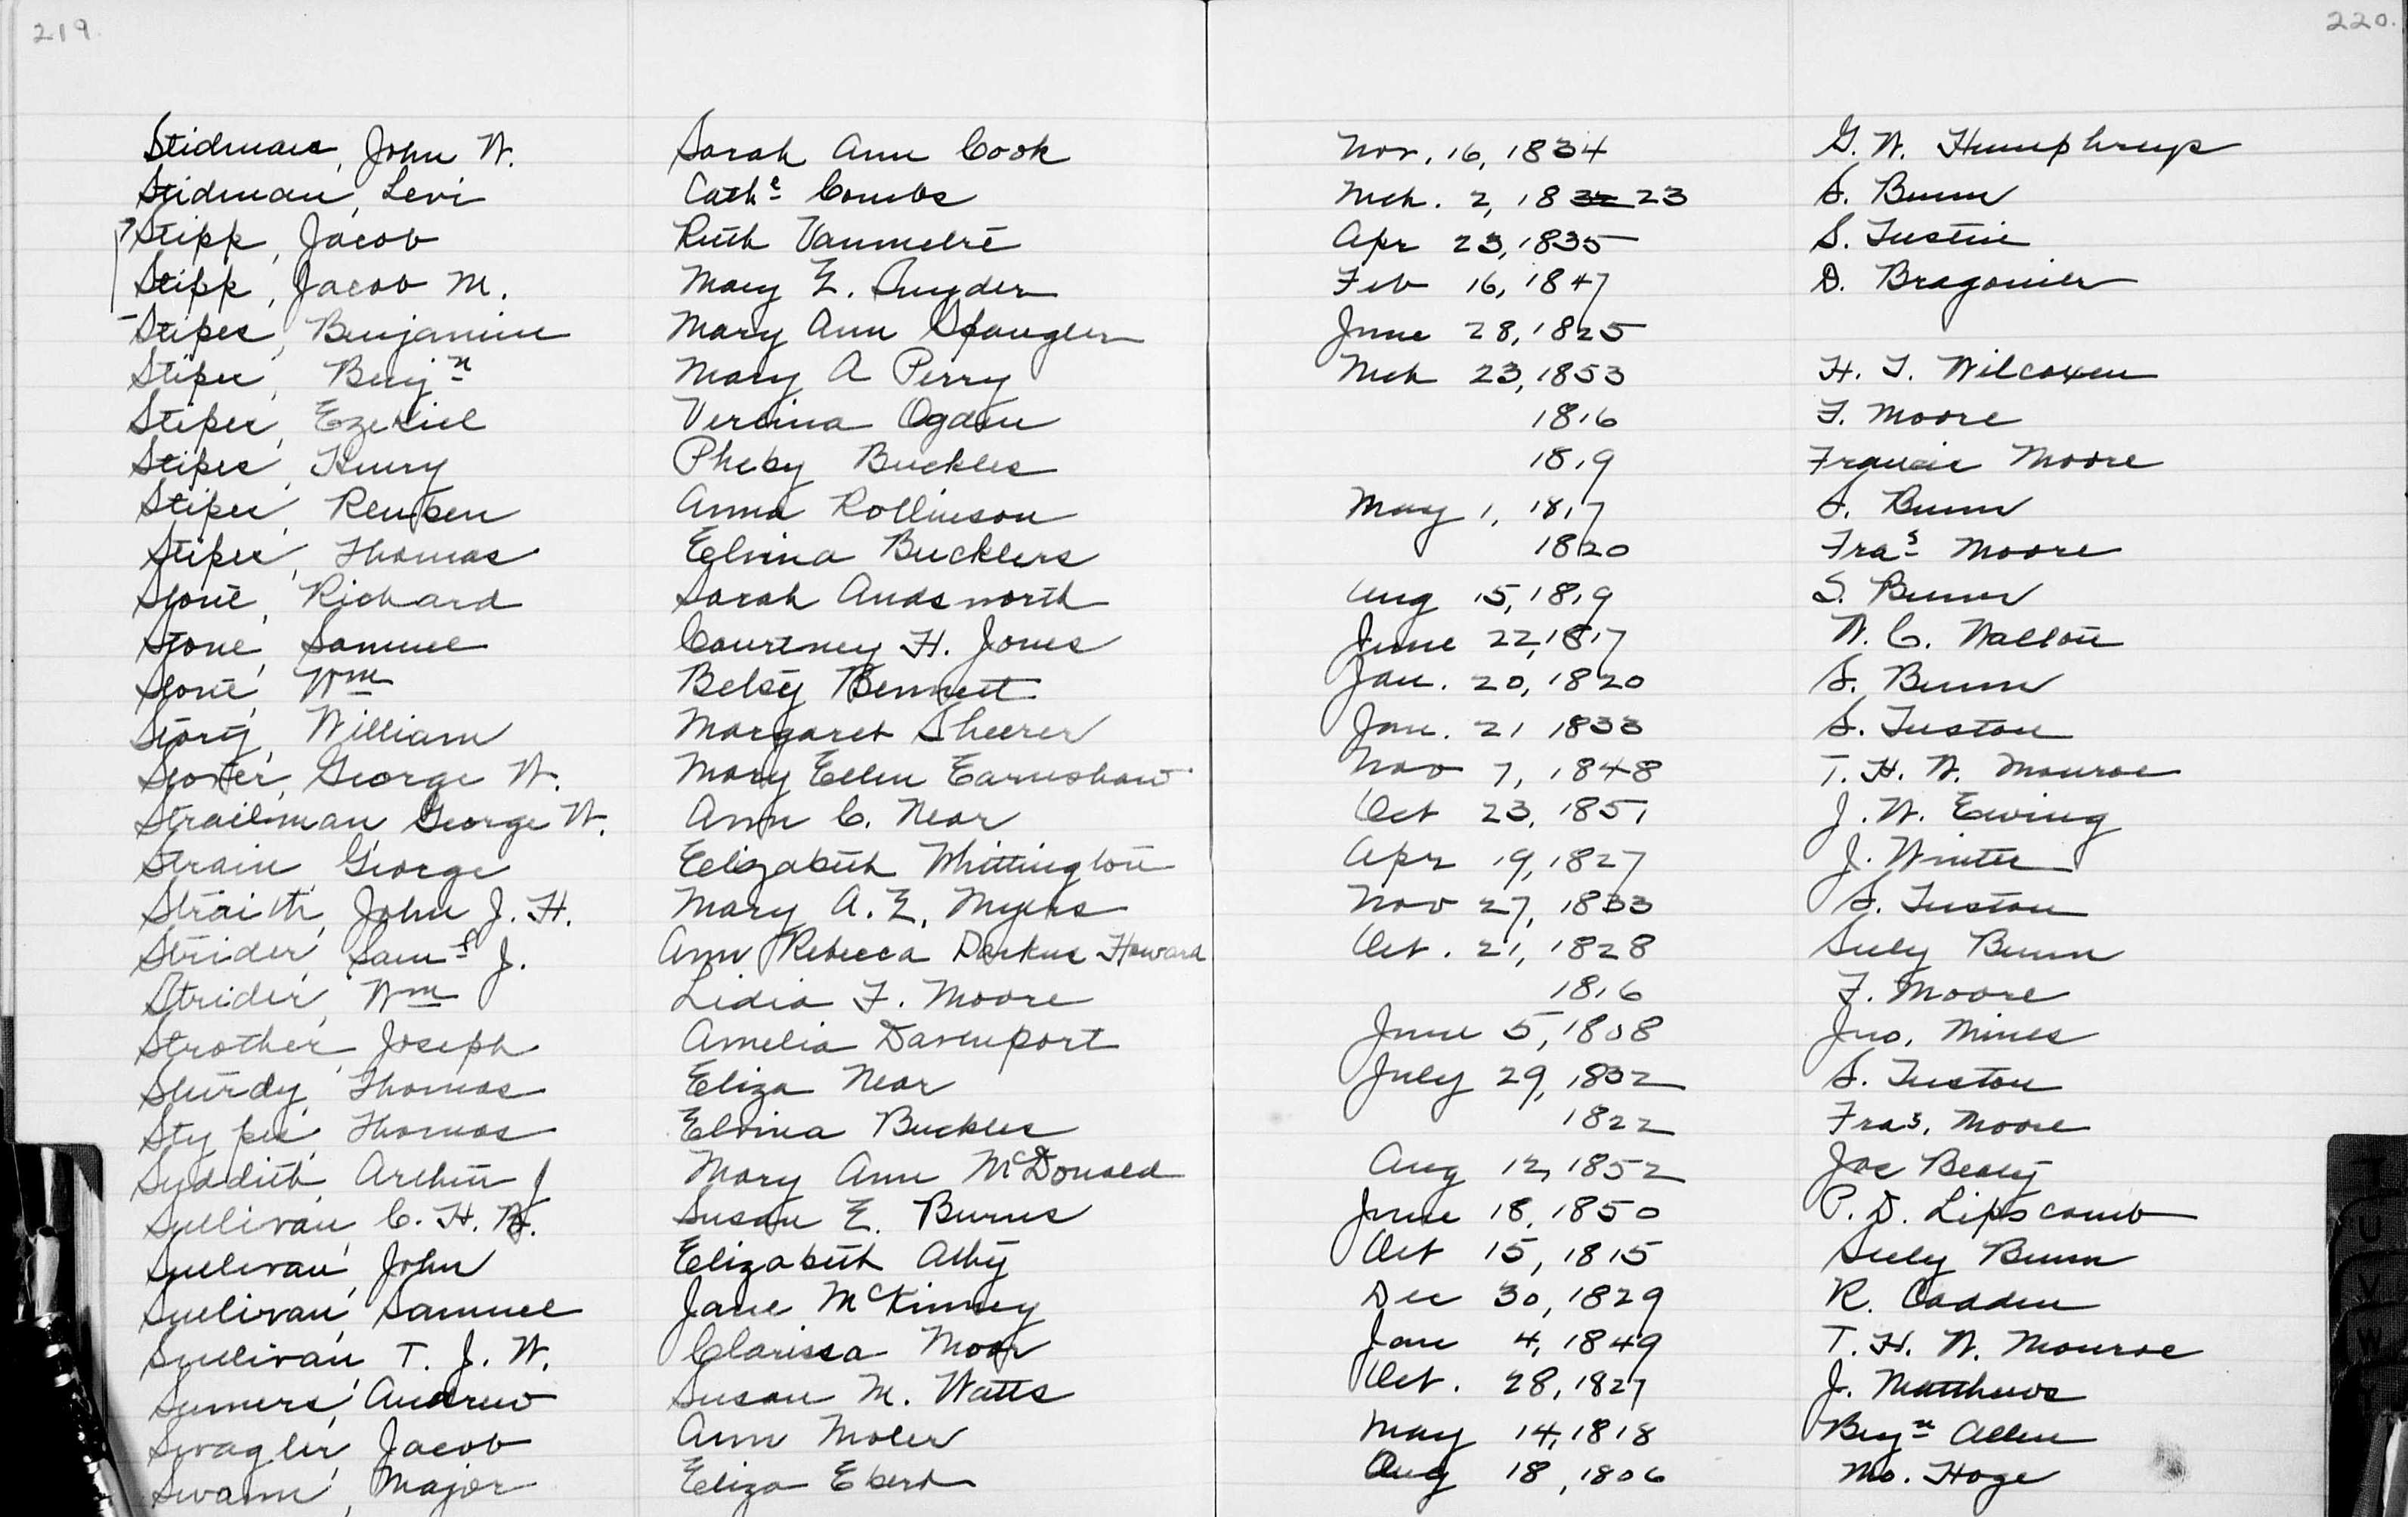 219. 220.
Stidman, John W. Sarah Ann Cook Nov. 16, 1834 G. W. Humphreys
Stidman, Levi Cathe Combs Mch. 2, 18 32 23 S. Bunn
Stipp, Jacob Ruth Vanmetre Apr 23, 1835 S. Tustin
Stipp, Jacob M. Mary E. Snyder Feb 16, 1847 D. Bragonier
Stipes, Benjamin Mary Ann Spangler June 28, 1825
Stipes, Benjn Mary A Perry Mch 23, 1853 H. T. Wilcoxen
Stipes, Ezekiel Ogden 1816 F. Moore
Stipes, Henry Pheby Buckles 1819 Francis Moore
Stipes, Reuben Anna Rollinson May 1, 1817 S. Bunn
Stipes, Thomas Elvina Bucklers 1820 Fras Moore
Stone, Richard Sarah Audsworth Aug 15, 1819 S. Bunn
Stone, Samuel Courtney H. Jones June 22, 1817 W. C. Walton
Stone, Wm Betsy Bennett Jan. 20, 1820 S. Bunn
Story, William Margaret Sheerer Jan. 21 1833 S. Tuston
George W. Mary Ellen Earnshaw Nov 7, 1848 T. H. W. Monroe
Strailman George W. Ann C. Near Oct 23, 1851 J. W. Ewing
Strain, George Elizabeth Whittington Apr 19, 1827 J. Winter
Straith, John J. H. Mary A. E. Myers Nov 27, 1833 S. Tuston
Strider, Saml J. Ann Rebecca Darkus Howard Oct. 21, 1828 Sely Bunn
Strider, Wm Lidia F. Moore 1816 F. Moore
Strother, Joseph Amelia Davenport June 5, 1808 Jno. Mines
Sturdy, Thomas Eliza Near July 29, 1832 S. Tuston
Stypes, Thomas Elvina Buckles 1822 Fras. Moore
Suddith, Arthur J Mary Ann McDonald Aug 12, 1852 Jas Beaty
Sullivan, C. H. W. Susan E. Burns June 18, 1850 P. D. Lipscomb
Sullivan, John Elizabeth Athy Oct 15, 1815 Sely Bunn
Sullivan, Samuel Jane McKinney Dec 30, 1829 R. Cadden
Sullivan, T. J. W. Clarissa Moor Jan 4, 1849 T. H. W. Monroe
Sumers, Andrew Susan M. Watts Oct. 28, 1827 J. Matthews
Swagler, Jacob Ann Moler May 14, 1818 Benjn Allen
Swann, Major Eliza Ebert Aug 18, 1806 Mo. Hoge
T
U
V
W